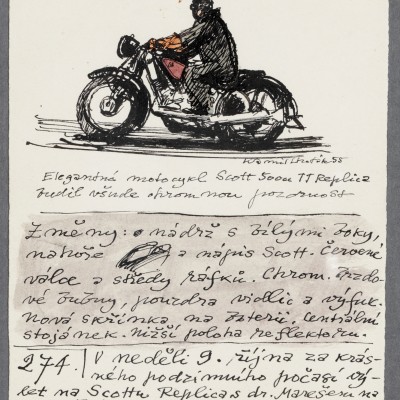 Kamil Lhoták 58
Elegantní motocykl Scott 500 TT Replica
budil všude ohromnou pozornost
Změny: nádrž s bílými boky,
nahoře a nápis Scott. Červené
válce a středy ráfků. Chrom. brzdo-
vé bubny, pouzdra vidlic a výfuk.
Nová skřínka na baterii, centrální
stojánek. Nižší poloha reflektoru.
274. V neděli 9. října za krás-
ného podzimního počasí vý-
let na Scottu Replica s dr. Marešem na